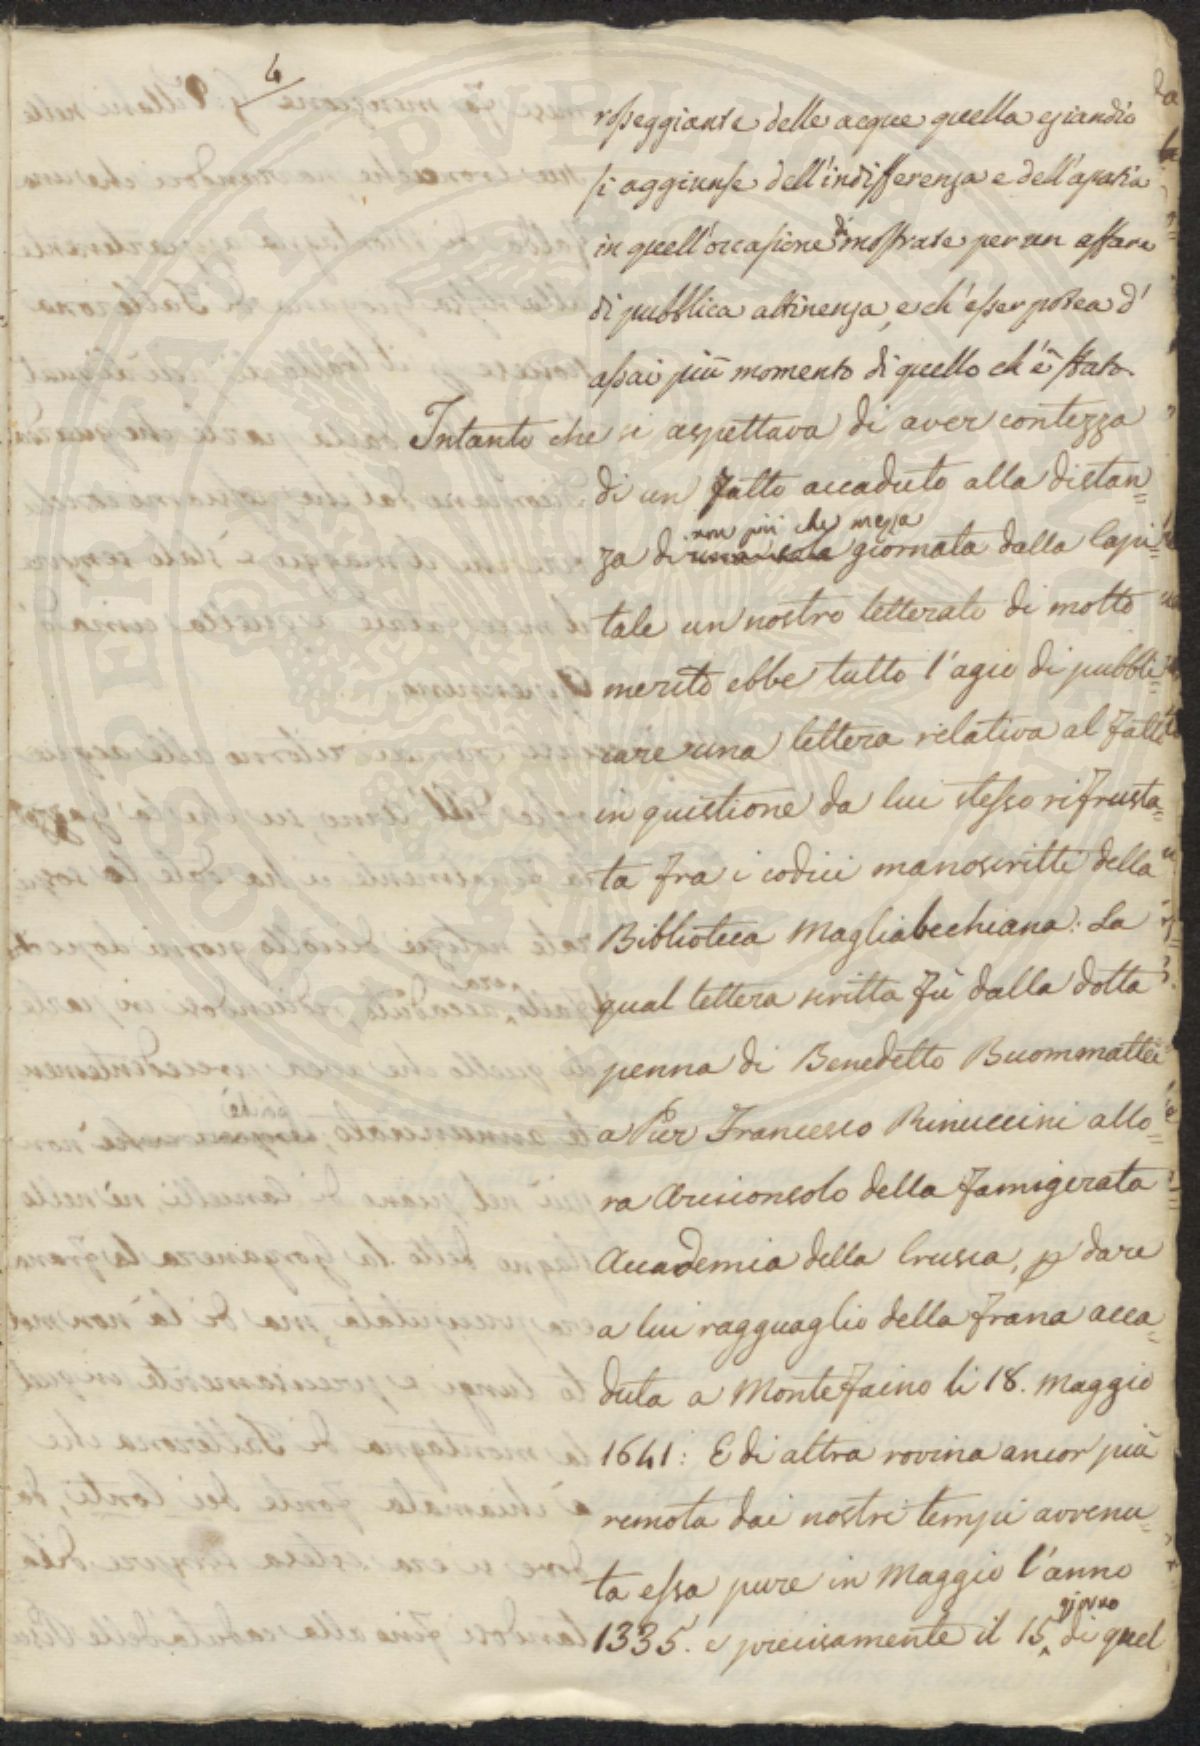 4
rosseggiante delle acque quella eziandio
si aggiunse dell'indifferenza e dell'apatia
in quell'occasione dimostrate per un affare
di pubblica attinenza, e ch'esser potea d'
assai più momento di quello ch'è stato.
Intanto che si aspettava di aver contezza
di un fatto accaduto alla distan=
non più che mezza
za di una sola giornata dalla Capi=
tale un nostro letterato di molto
merito ebbe tutto l'agio di pubbli=
care una lettera relativa al fatto
in quistione da lui stesso rifrusta=
ta fra i codici manoscritti della
Biblioteca Magliabechiana: La
qual lettera scritta fù dalla dotta
penna di Benedetto Buommattei
a Pier Francesco Rinuccini allo=
ra Arciconsolo della famigerata
Accademia della Crusca, p dare
a lui ragguaglio della frana acca=
duta a Montefaino li 18. Maggio
1641: E di altra rovina ancor più
remota dai nostri tempi avvenu=
ta essa pure in Maggio l'anno
giorno
1335. e precisamente il 15 di quel